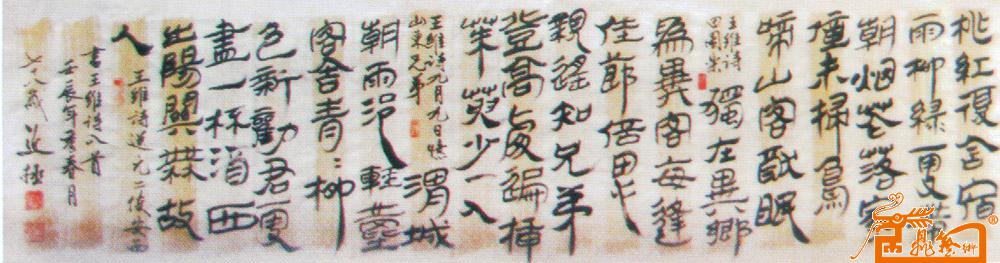 桃紅復含宿
雨柳綠更帶
朝烟花落家
僮未掃鳥
啼山客猷眠
王維詩
田園樂
獨在異鄉
為異客每逢
佳節倍思
親遥知兄弟
登高處遍插
茱萸少一人
王維詩九月九日憶
山東兄弟
渭城
朝雨浥輕塵
客舍青々柳
色新勸君更
盡一杯酒西
出陽關無故
人
王維詩送元二使安西
書王維詩八首
壬辰年季春月
七十八歲